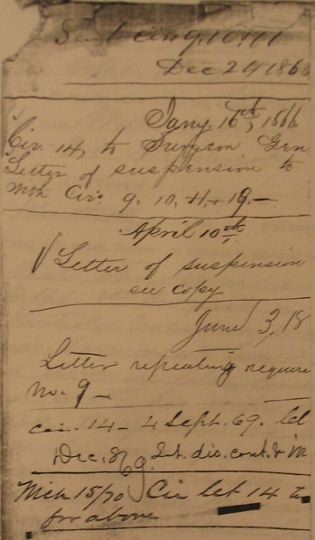 Dec 29 1863
Jany 16th, 1866
Cir. 14, to Surgeon Gen
Letter of suspension to
with Cir. 9, 10, 11 & 19,—
April 10th
√ Letter of suspension
see copy
June 3, 18
Letter repeating require
No. 9 —
cir. 14 — 4 Sept. 69. let
Dec. 8/69. Lt. dis. cont. &
Mch 15/70 Cir let 14 to
for above